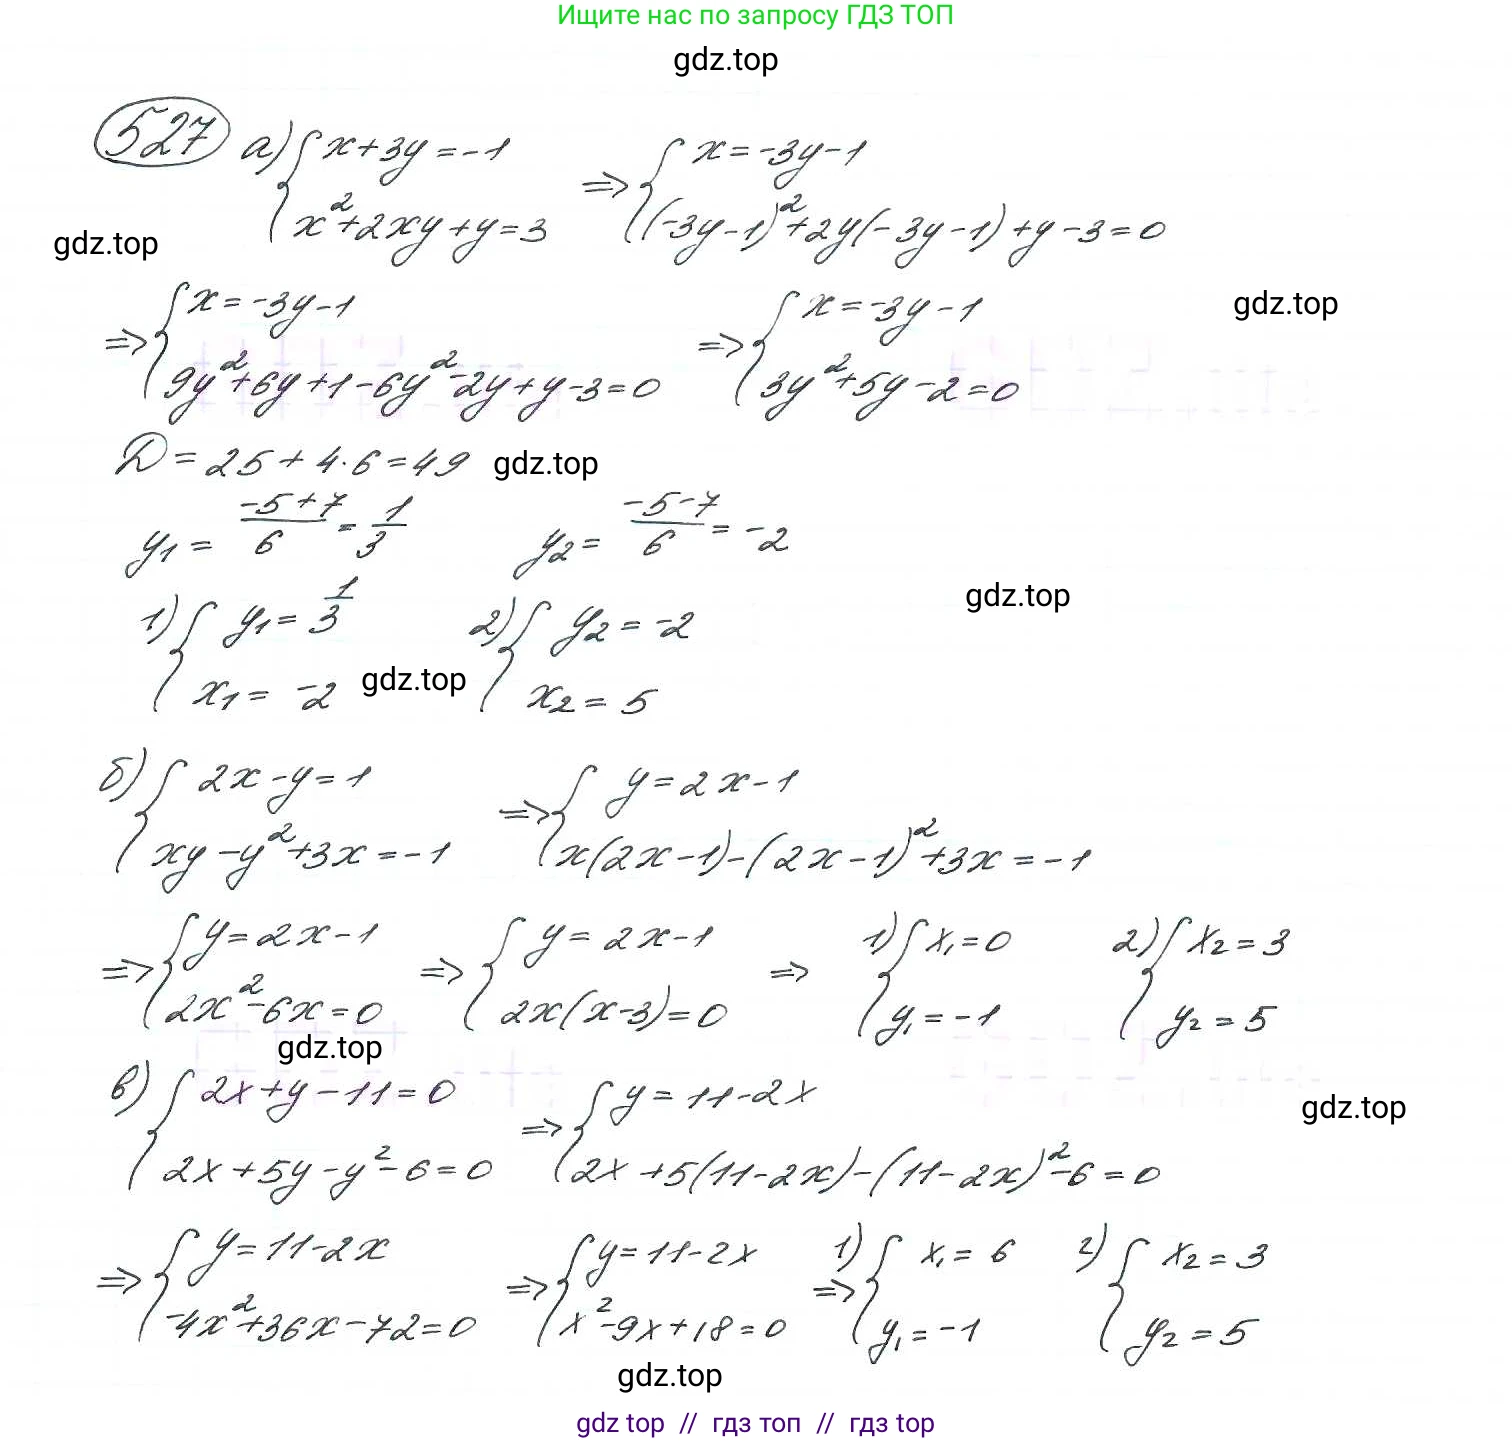 Ищите нас по запросу ГДЗ ТОП
gdz.top
527 а) { x+3y=-1 ; x²+2xy+y=3 ⇒ { x=-3y-1 ; (-3y-1)²+2y(-3y-1)+y-3=0
gdz.top
⇒ { x=-3y-1 ; 9y²+6y+1-6y²-2y+y-3=0 ⇒ { x=-3y-1 ; 3y²+5y-2=0
gdz.top
D=25+4·6=49 gdz.top
y₁ = (-5+7)/6 = 1/3 y₂ = (-5-7)/6 = -2
gdz.top
1) { y₁ = 1/3 ; x₁ = -2 gdz.top 2) { y₂ = -2 ; x₂ = 5
б) { 2x-y=1 ; xy-y²+3x=-1 ⇒ { y=2x-1 ; x(2x-1)-(2x-1)²+3x=-1
⇒ { y=2x-1 ; 2x²-6x=0 ⇒ { y=2x-1 ; 2x(x-3)=0 ⇒ 1) { x₁=0 ; y₁=-1 2) { x₂=3 ; y₂=5
gdz.top
в) { 2x+y-11=0 ; 2x+5y-y²-6=0 ⇒ { y=11-2x ; 2x+5(11-2x)-(11-2x)²-6=0
gdz.top
⇒ { y=11-2x ; -4x²+36x-72=0 ⇒ { y=11-2x ; x²-9x+18=0 ⇒ 1) { x₁=6 ; y₁=-1 2) { x₂=3 ; y₂=5
gdz.top
gdz top // гдз топ // гдз top